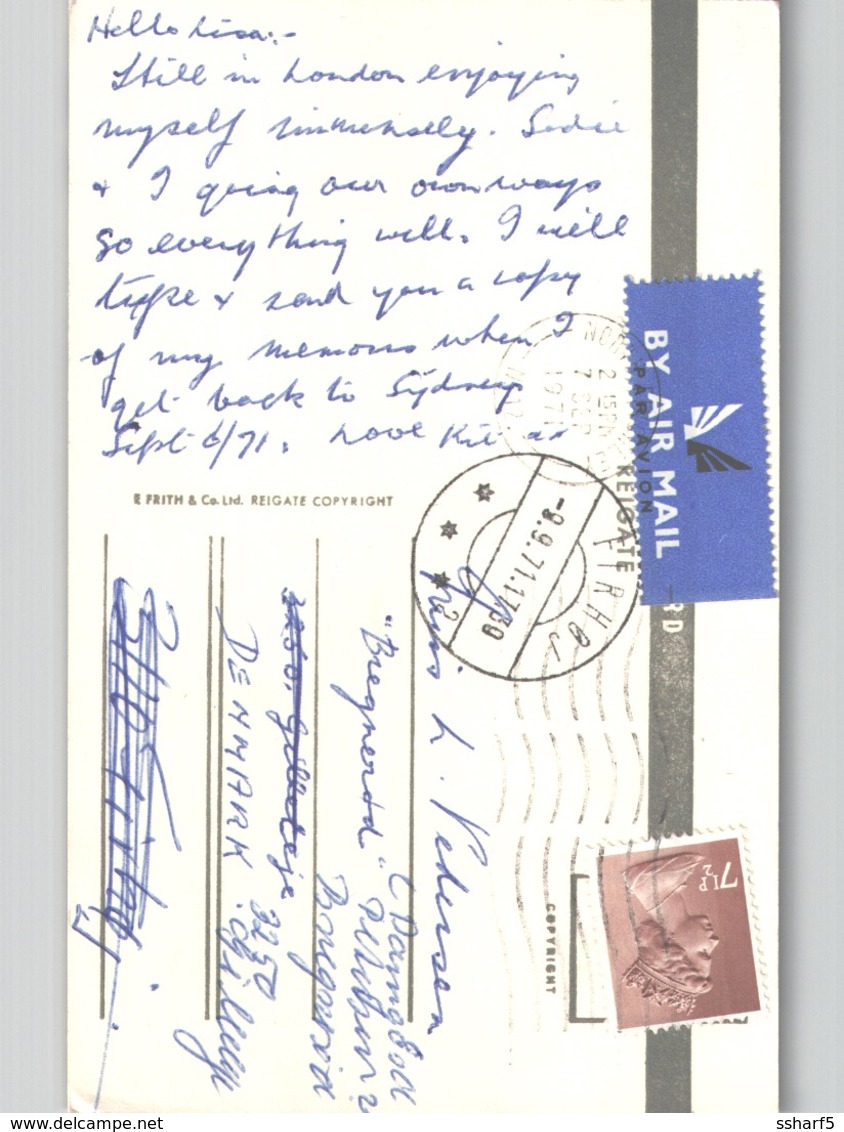 Hello Lisa:-
Still in London enjoying
myself immensely. Sadie
& I going our own ways
so everything well. I will
type & send you a copy
of my memoirs when I
get back to Sydney
Sept 6/71. Love Kit
E FRITH & Co. Ltd. REIGATE COPYRIGHT
BY AIR MAIL
PAR AVION
REIGATE
RD
NOR
2 15 PM
7 SEP
1971
FIRHØJ
-8.9.71.17
2
7½P
COPYRIGHT
L. Pedersen
"Bregnerød"
3250 Gilleleje
3250 Gilleleje
DENMARK